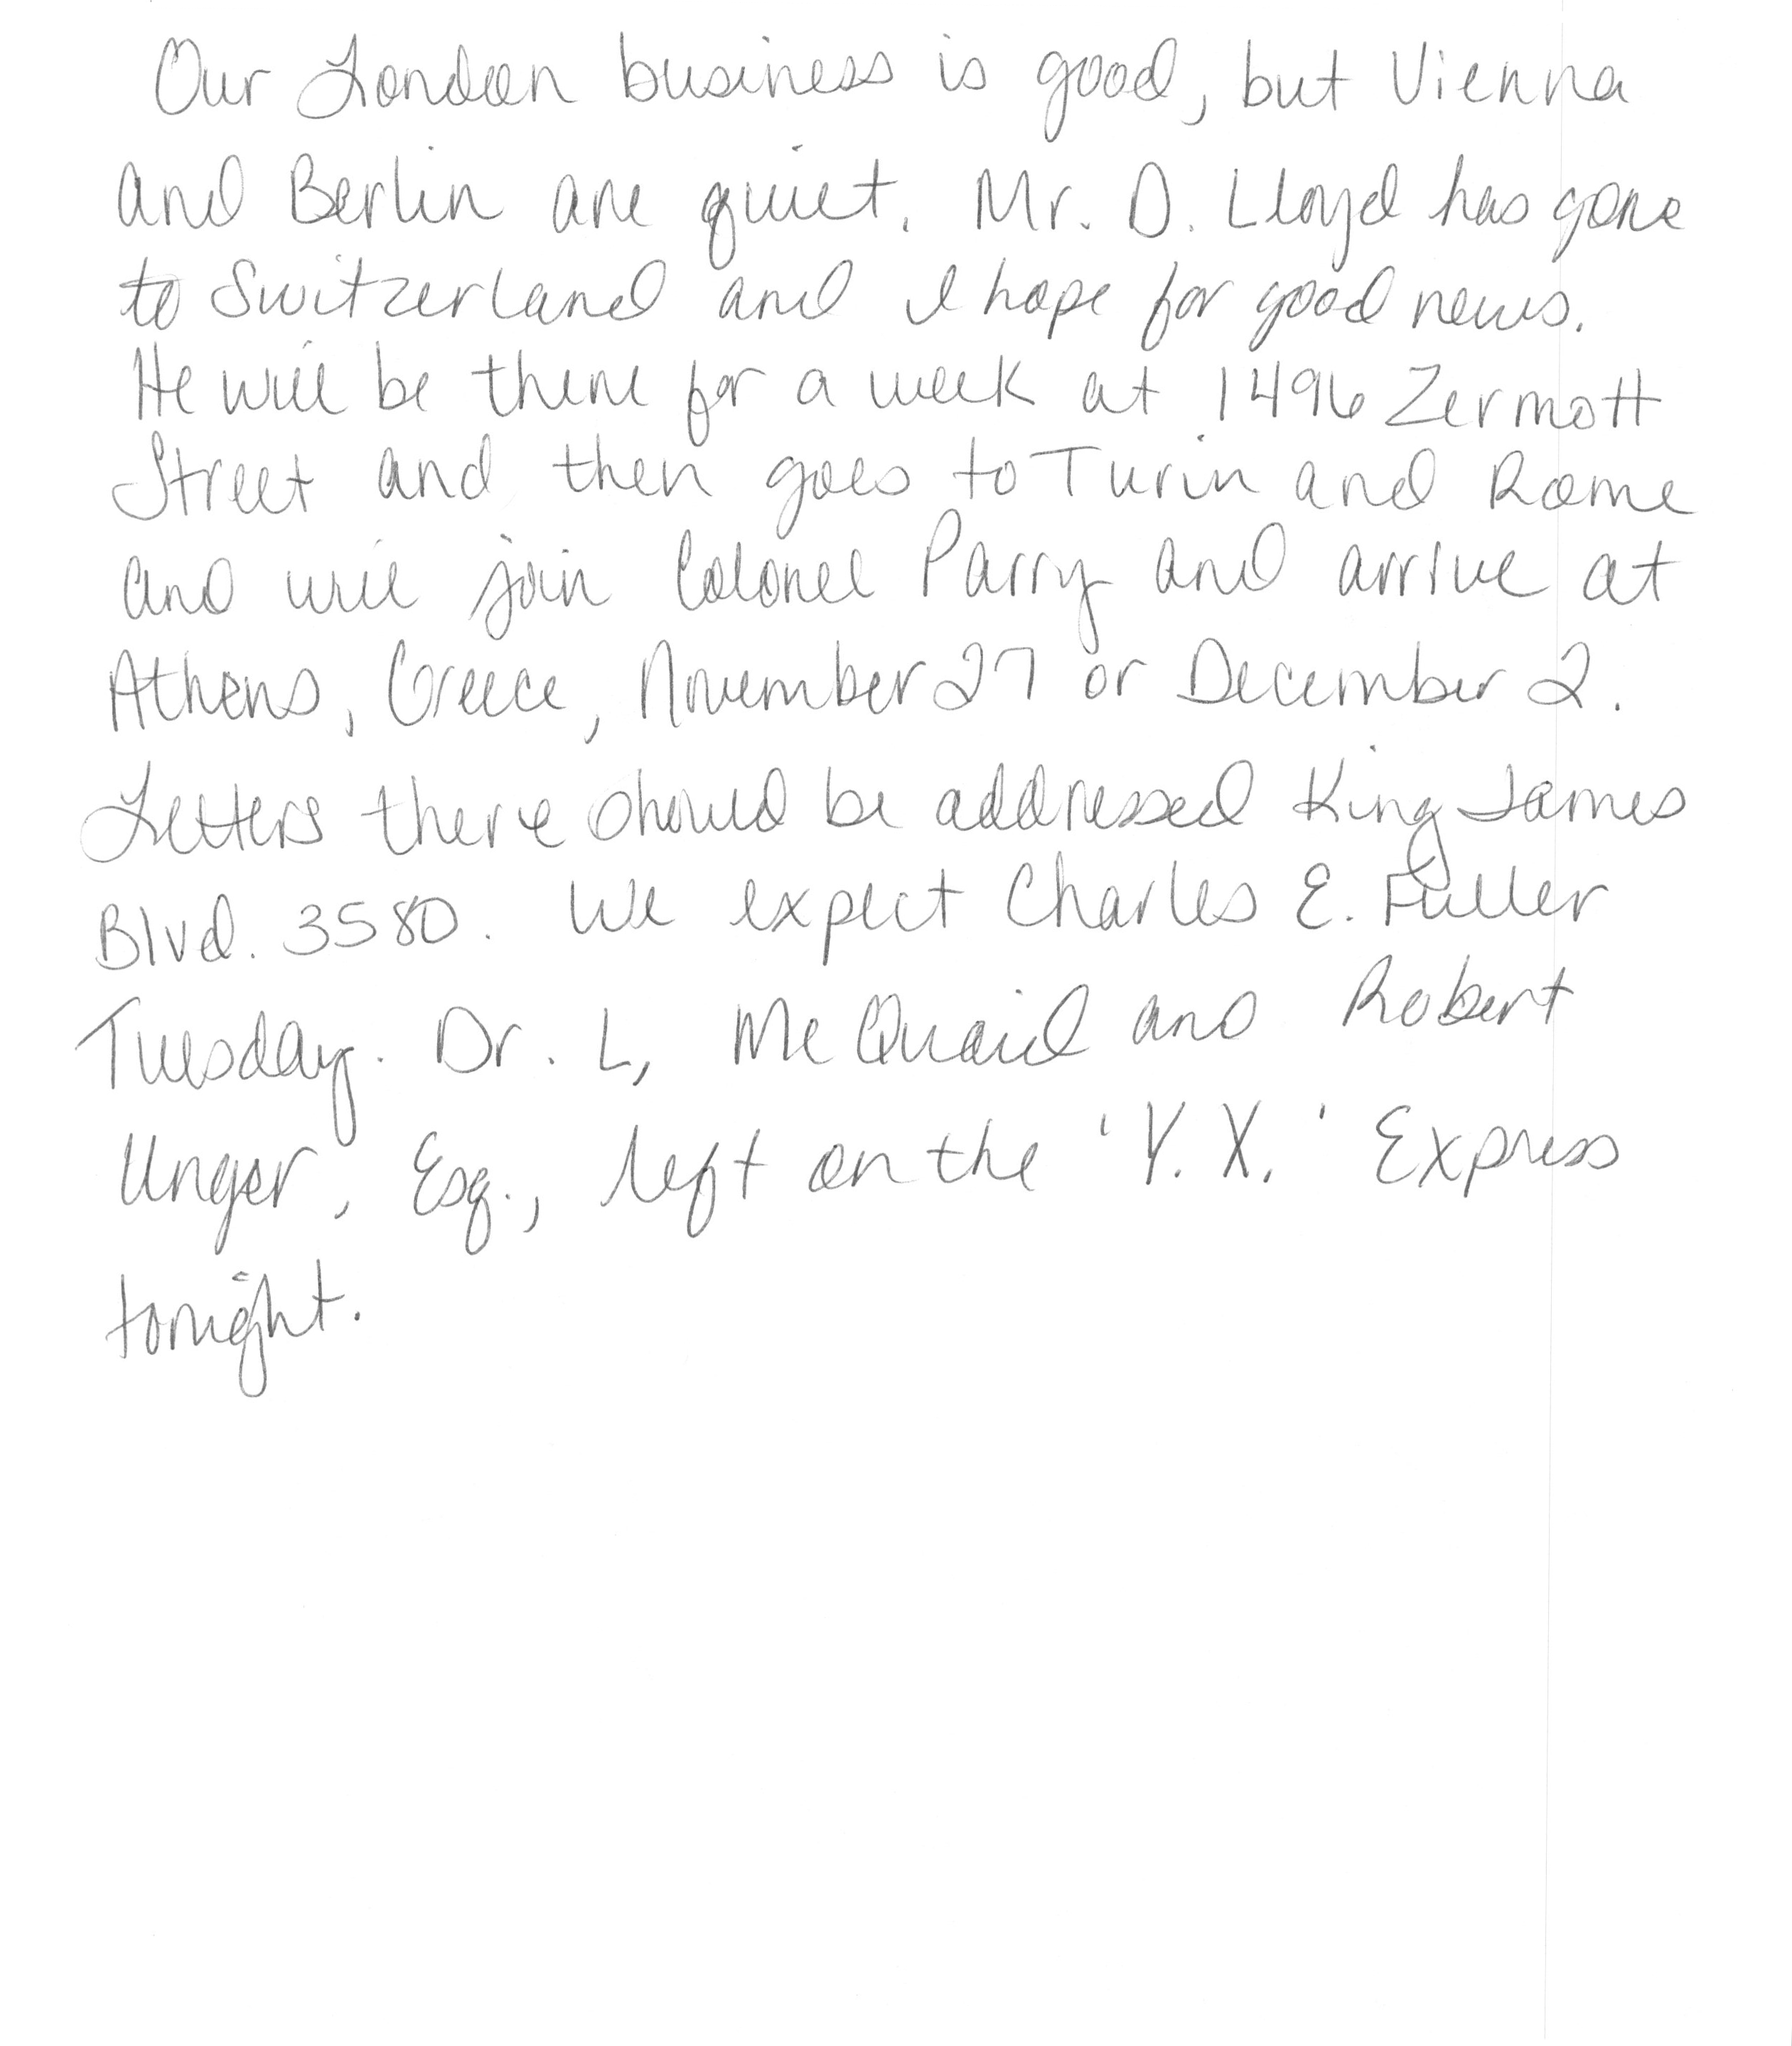 Our London business is good, but Vienna
and Berlin are quiet. Mr. D. Lloyd has gone
to Switzerland and I hope for good news.
He will be there for a week at 1496 Zermott
Street and then goes to Turin and Rome
and will join Colonel Parry and arrive at
Athens, Greece, November 27 or December 2.
Letters there should be addressed King James
Blvd. 3580. We expect Charles E. Fuller
Tuesday. Dr. L, McQuaid and Robert
Unger, Esq., left on the 'Y. X.' Express
tonight.